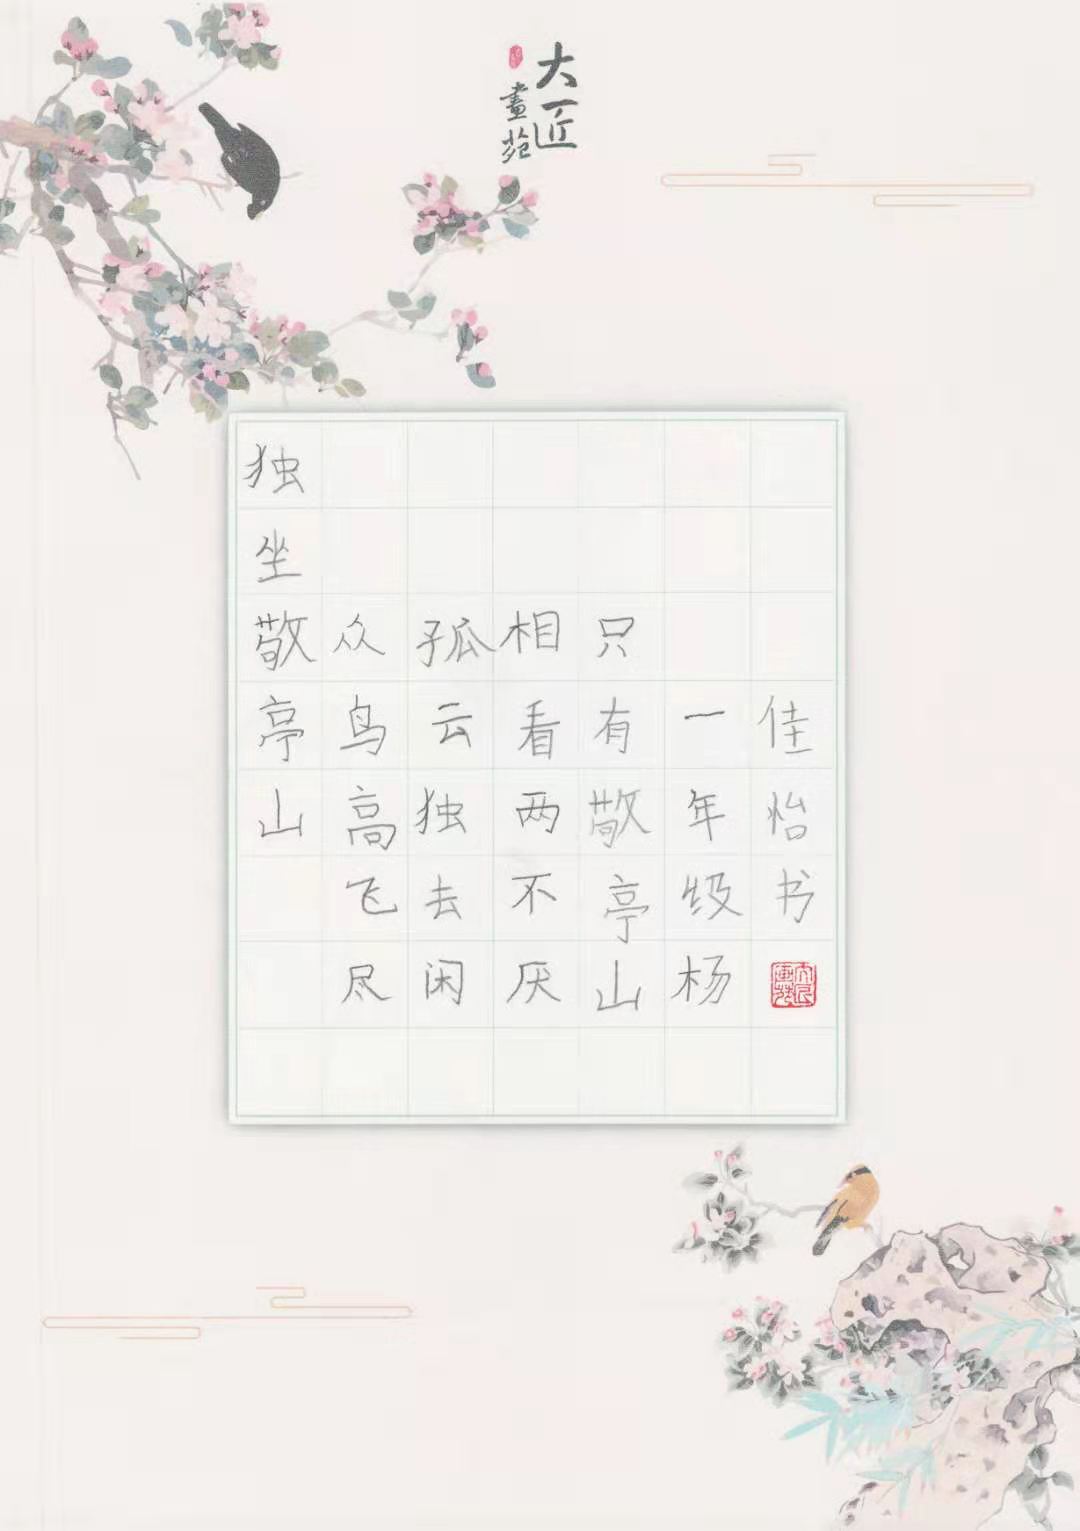 大匠
畫苑
独坐敬亭山
众鸟高飞尽
孤云独去闲
相看两不厌
只有敬亭山
一年级杨
佳怡书